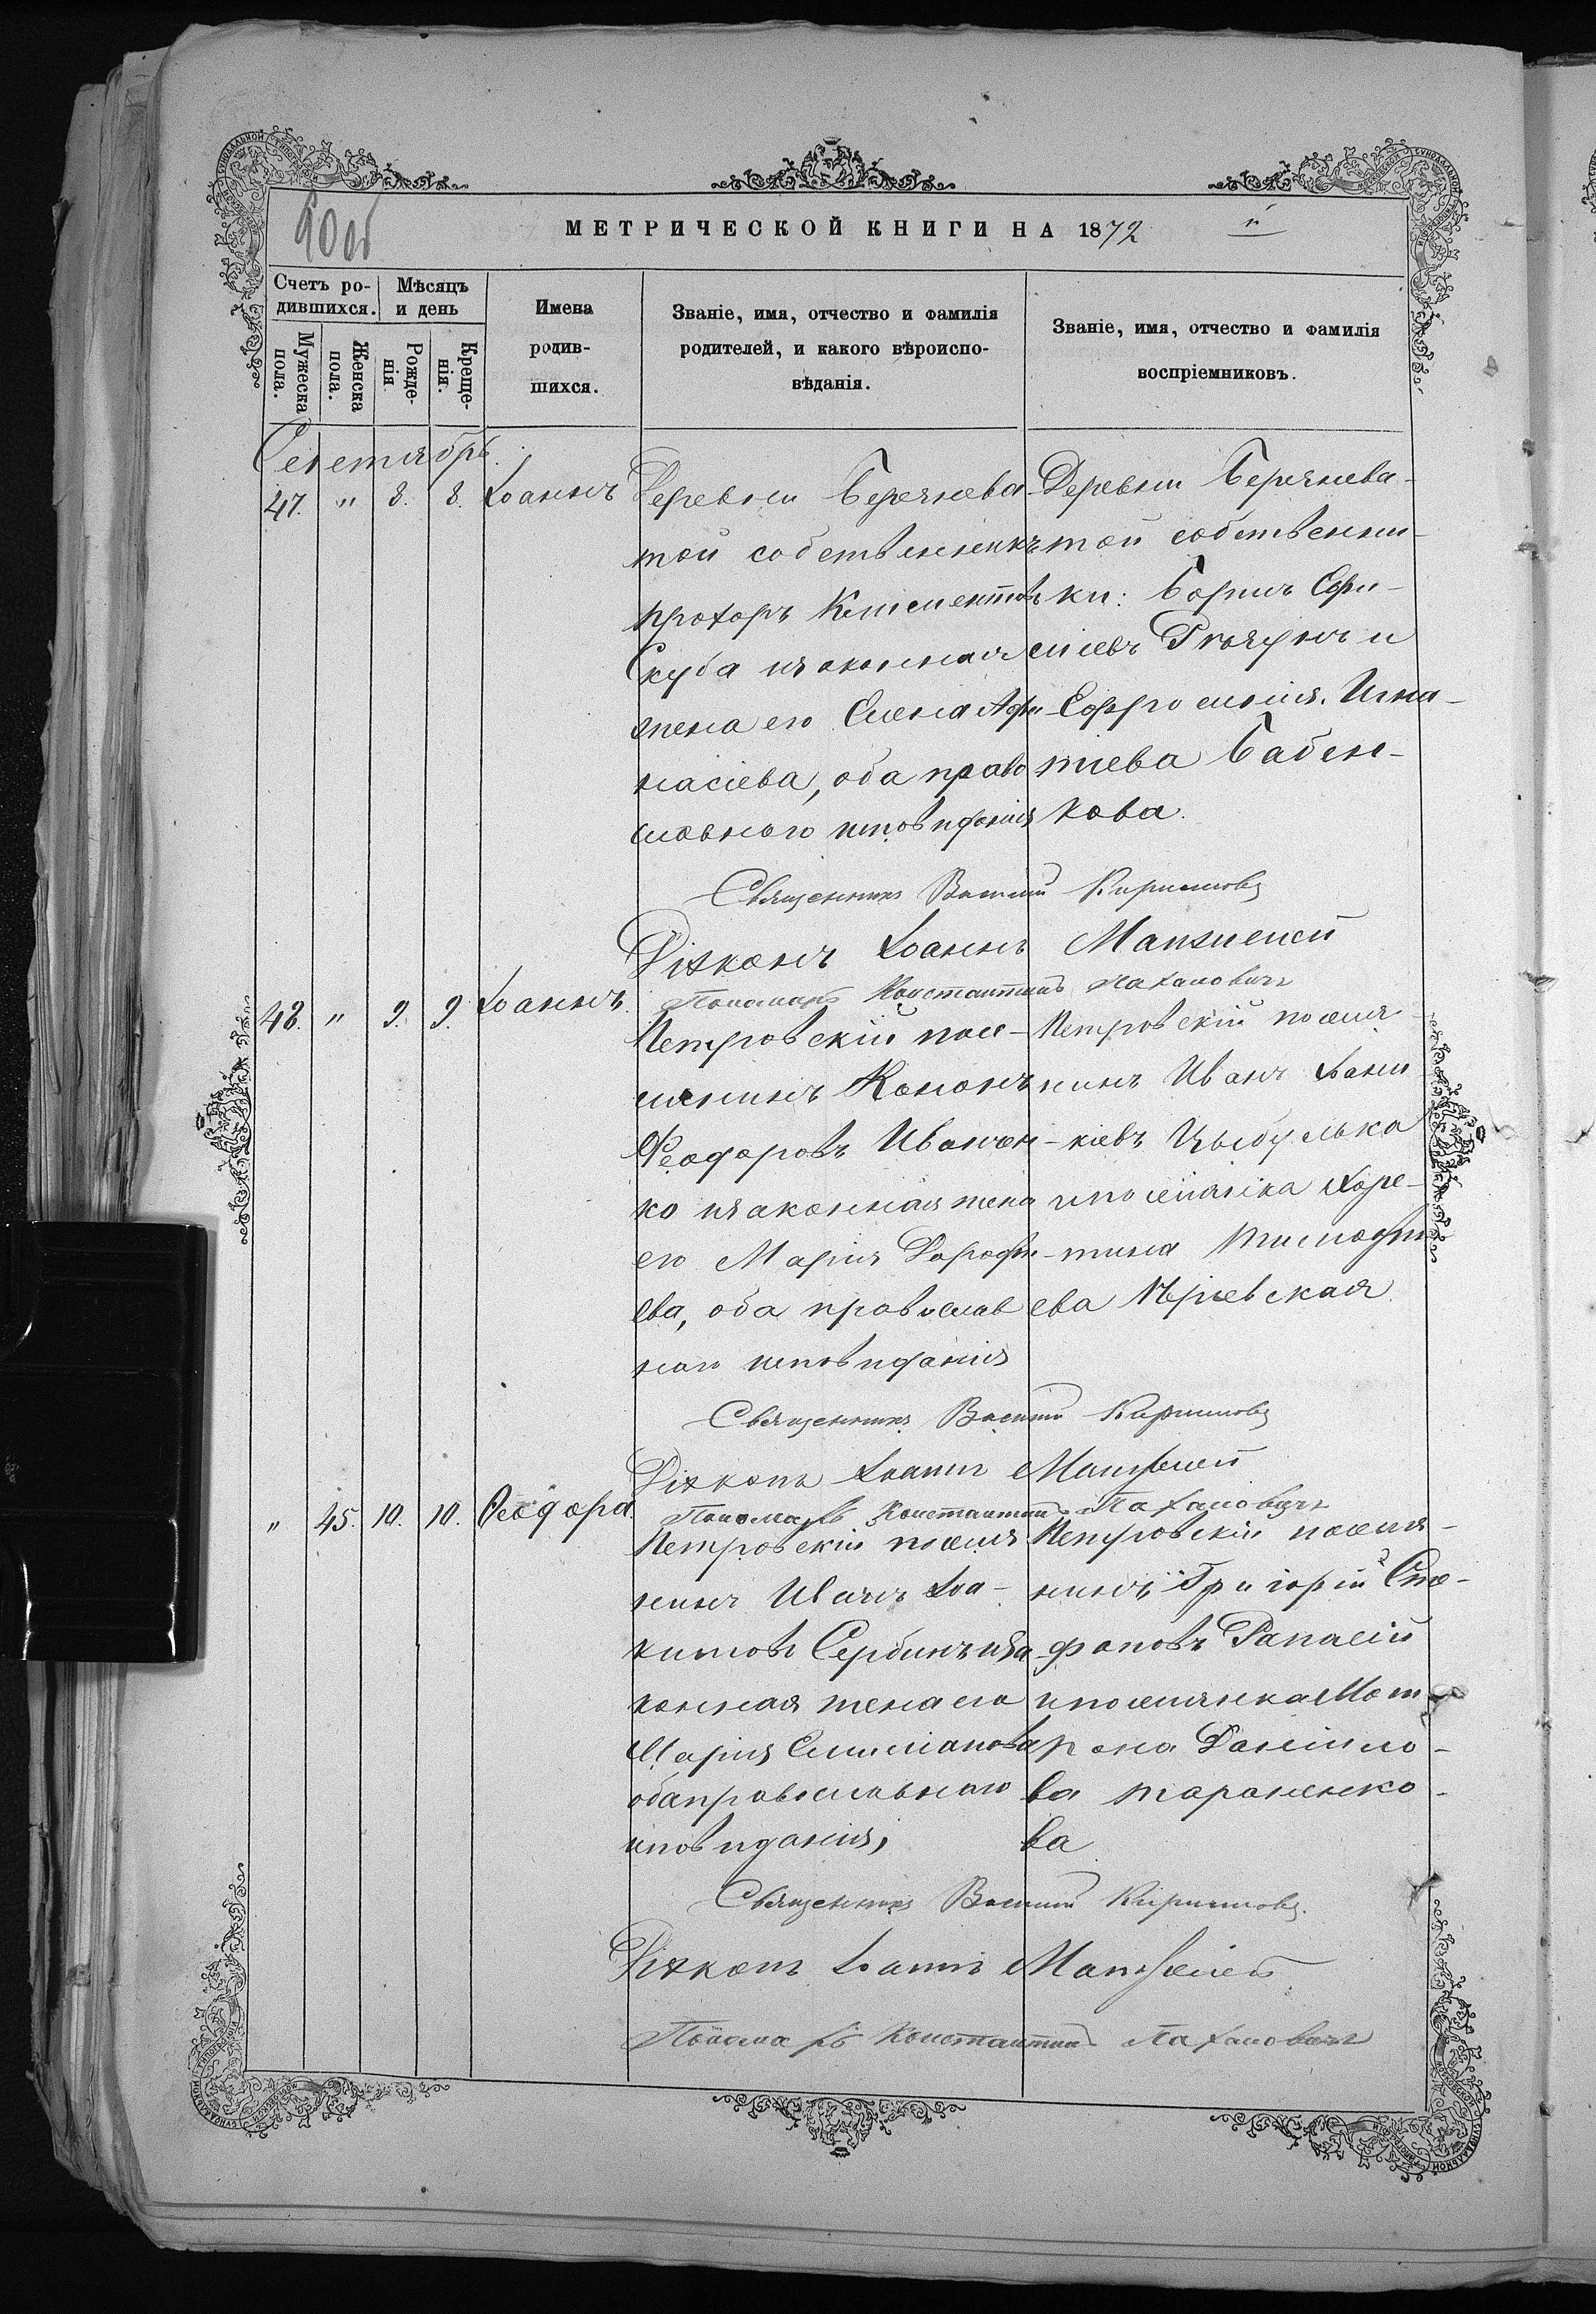 90 об
МЕТРИЧЕСКОЙ КНИГИ НА 1872
Счетъ ро-
дившихся.
Мѣсяцъ
и день
Имена
родив-
шихся.
Званіе, имя, отчество и фамилія
родителей, и какого вѣроиспо-
вѣданія.
Званіе, имя, отчество и фамилія
воспріемниковъ.
Мужеска
пола.
Женска
пола.
Рожде-
нія
Креще-
нія.
Сентябрь.
47. " 8. 8. Іоаннъ
Деревни Беречнева-
той собственникъ
Прохоръ Климентовъ
Скуба и законная
жена его Елена Афа-
насіева, оба право
славнаго исповѣданія
Деревни Беречнева-
той собственни-
ки: Борисъ Ефи-
міевъ и
Ефросинія Игна-
тіева Бабен-
кова.
Священникъ Василій Кирилловъ
Діаконъ Іоаннъ
Пономарь Константинъ
48. " 9. 9. Іоаннъ.
Петровскій посе-
лянинъ Кононъ
Феодоровъ Иванчен-
ко и законная жена
его Марія Дорофе-
ева, оба православ
наго исповѣданія
Петровскій поселя-
нинъ Иванъ Іоани-
кіевъ Цыбулька
и поселянка Хоре-
тина Тимофе
ева
Священникъ Василій Кирилловъ
Діаконъ Іоаннъ
Пономарь Константинъ
" 45. 10. 10. Феодора.
Петровскій поселя
нинъ Иванъ Іоа-
кимовъ Сербинъ и за
конная жена его
Марія Емиліанова
оба православнаго
исповѣданія,
Петровскій поселя-
нинъ Григорій Сте-
фановъ
и поселянка Мот-
рона Даніило-
ва Тараненко-
ва
Священникъ Василій Кирилловъ.
Діаконъ Іоаннъ
Пономарь Константинъ